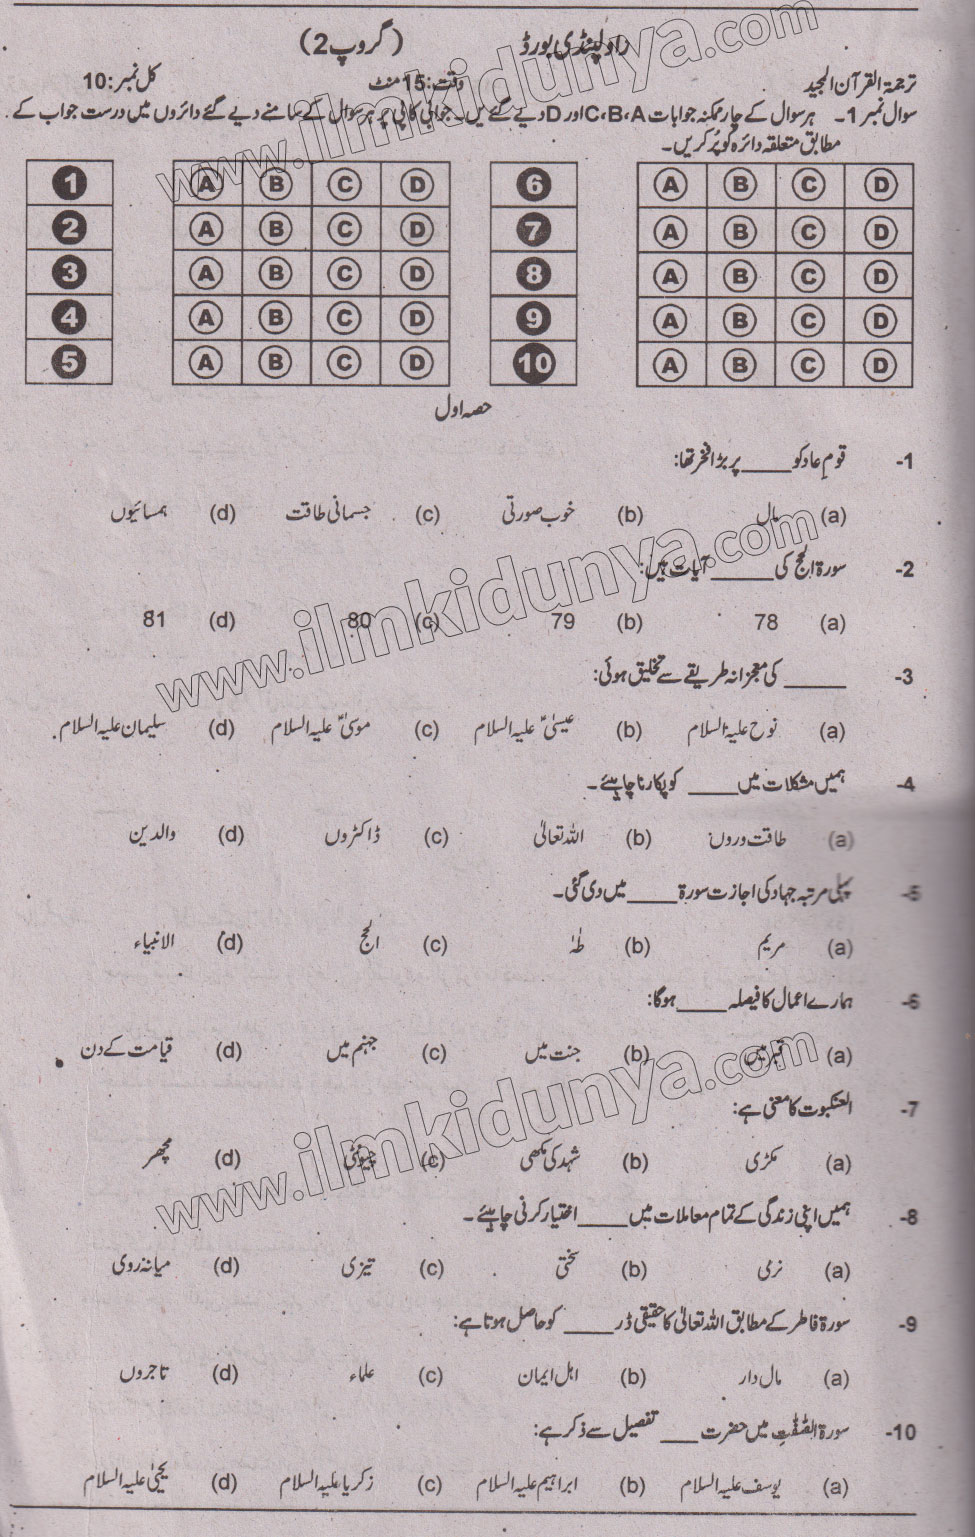 راولپنڈی بورڈ (گروپ 2)
ترجمۃ القرآن المجید وقت: 15 منٹ کل نمبر: 10
سوال نمبر 1۔ ہر سوال کے چار ممکنہ جوابات A، B، C اور D دیے گئے ہیں۔ جوابی کاپی پر ہر سوال کے سامنے دیے گئے دائروں میں درست جواب کے
مطابق متعلقہ دائرہ کو پُر کریں۔
1 A B C D 6 A B C D
2 A B C D 7 A B C D
3 A B C D 8 A B C D
4 A B C D 9 A B C D
5 A B C D 10 A B C D
حصہ اول
1- قومِ عاد کو _____ پر بڑا فخر تھا:
(a) مال (b) خوب صورتی (c) جسمانی طاقت (d) ہمسائیوں
2- سورۃ الحج کی _____ آیات ہیں:
(a) 78 (b) 79 (c) 80 (d) 81
3- _____ کی معجزانہ طریقے سے تخلیق ہوئی:
(a) نوح علیہ السلام (b) عیسیٰؑ علیہ السلام (c) موسیٰؑ علیہ السلام (d) سلیمان علیہ السلام
4- ہمیں مشکلات میں _____ کو پکارنا چاہیئے۔
(a) طاقت وروں (b) اللہ تعالیٰ (c) ڈاکٹروں (d) والدین
5- پہلی مرتبہ جہاد کی اجازت سورۃ _____ میں دی گئی۔
(a) مریم (b) طٰہٰ (c) الحج (d) الانبیاء
6- ہمارے اعمال کا فیصلہ _____ ہوگا:
(a) قبر میں (b) جنت میں (c) جہنم میں (d) قیامت کے دن
7- العنکبوت کا معنی ہے:
(a) مکڑی (b) شہد کی مکھی (c) چیونٹی (d) مچھر
8- ہمیں اپنی زندگی کے تمام معاملات میں _____ اختیار کرنی چاہیئے۔
(a) نرمی (b) سختی (c) تیزی (d) میانہ روی
9- سورۃ فاطر کے مطابق اللہ تعالیٰ کا حقیقی ڈر _____ کو حاصل ہوتا ہے:
(a) مال دار (b) اہل ایمان (c) علماء (d) تاجروں
10- سورۃ الصّٰفّٰتِ میں حضرت ____ تفصیل سے ذکر ہے:
(a) یوسف علیہ السلام (b) ابراہیم علیہ السلام (c) زکریا علیہ السلام (d) یحییٰ علیہ السلام
www.ilmkidunya.com
www.ilmkidunya.com
www.ilmkidunya.com